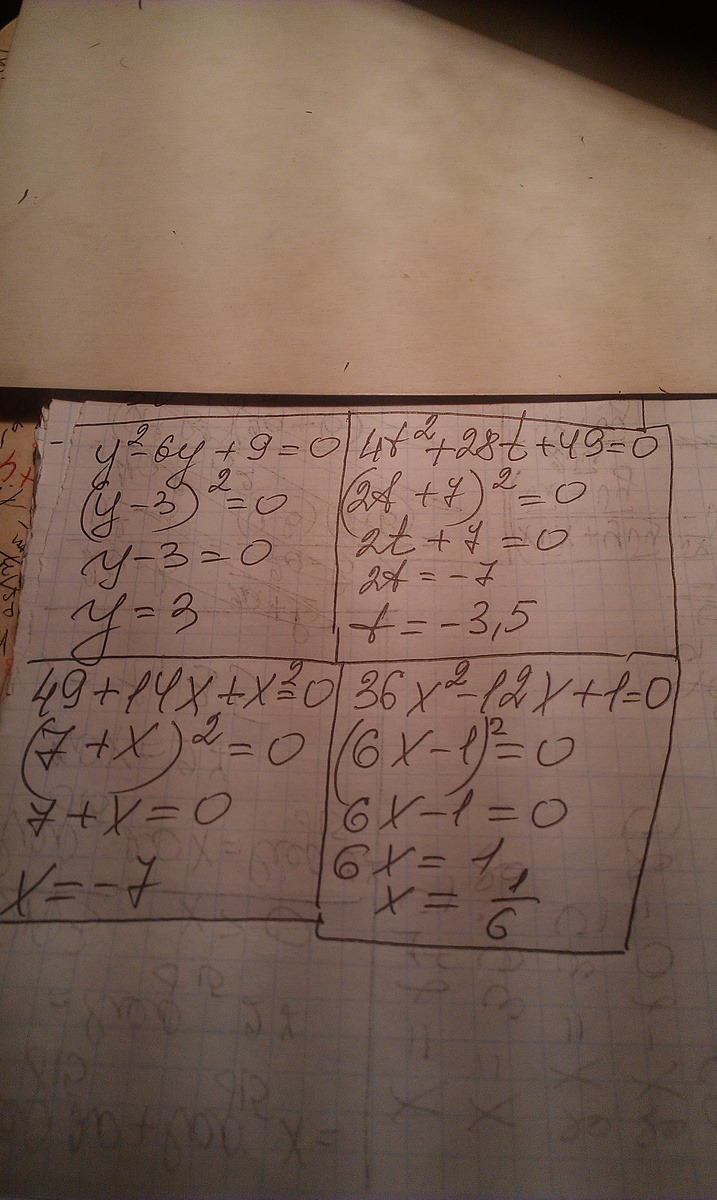 y²-6y+9=0
(y-3)²=0
y-3=0
y=3
4t²+28t+49=0
(2t+7)²=0
2t+7=0
2t=-7
t=-3,5
49+14x+x²=0
(7+x)²=0
7+x=0
x=-7
36x²-12x+1=0
(6x-1)²=0
6x-1=0
6x=1
x=1/6